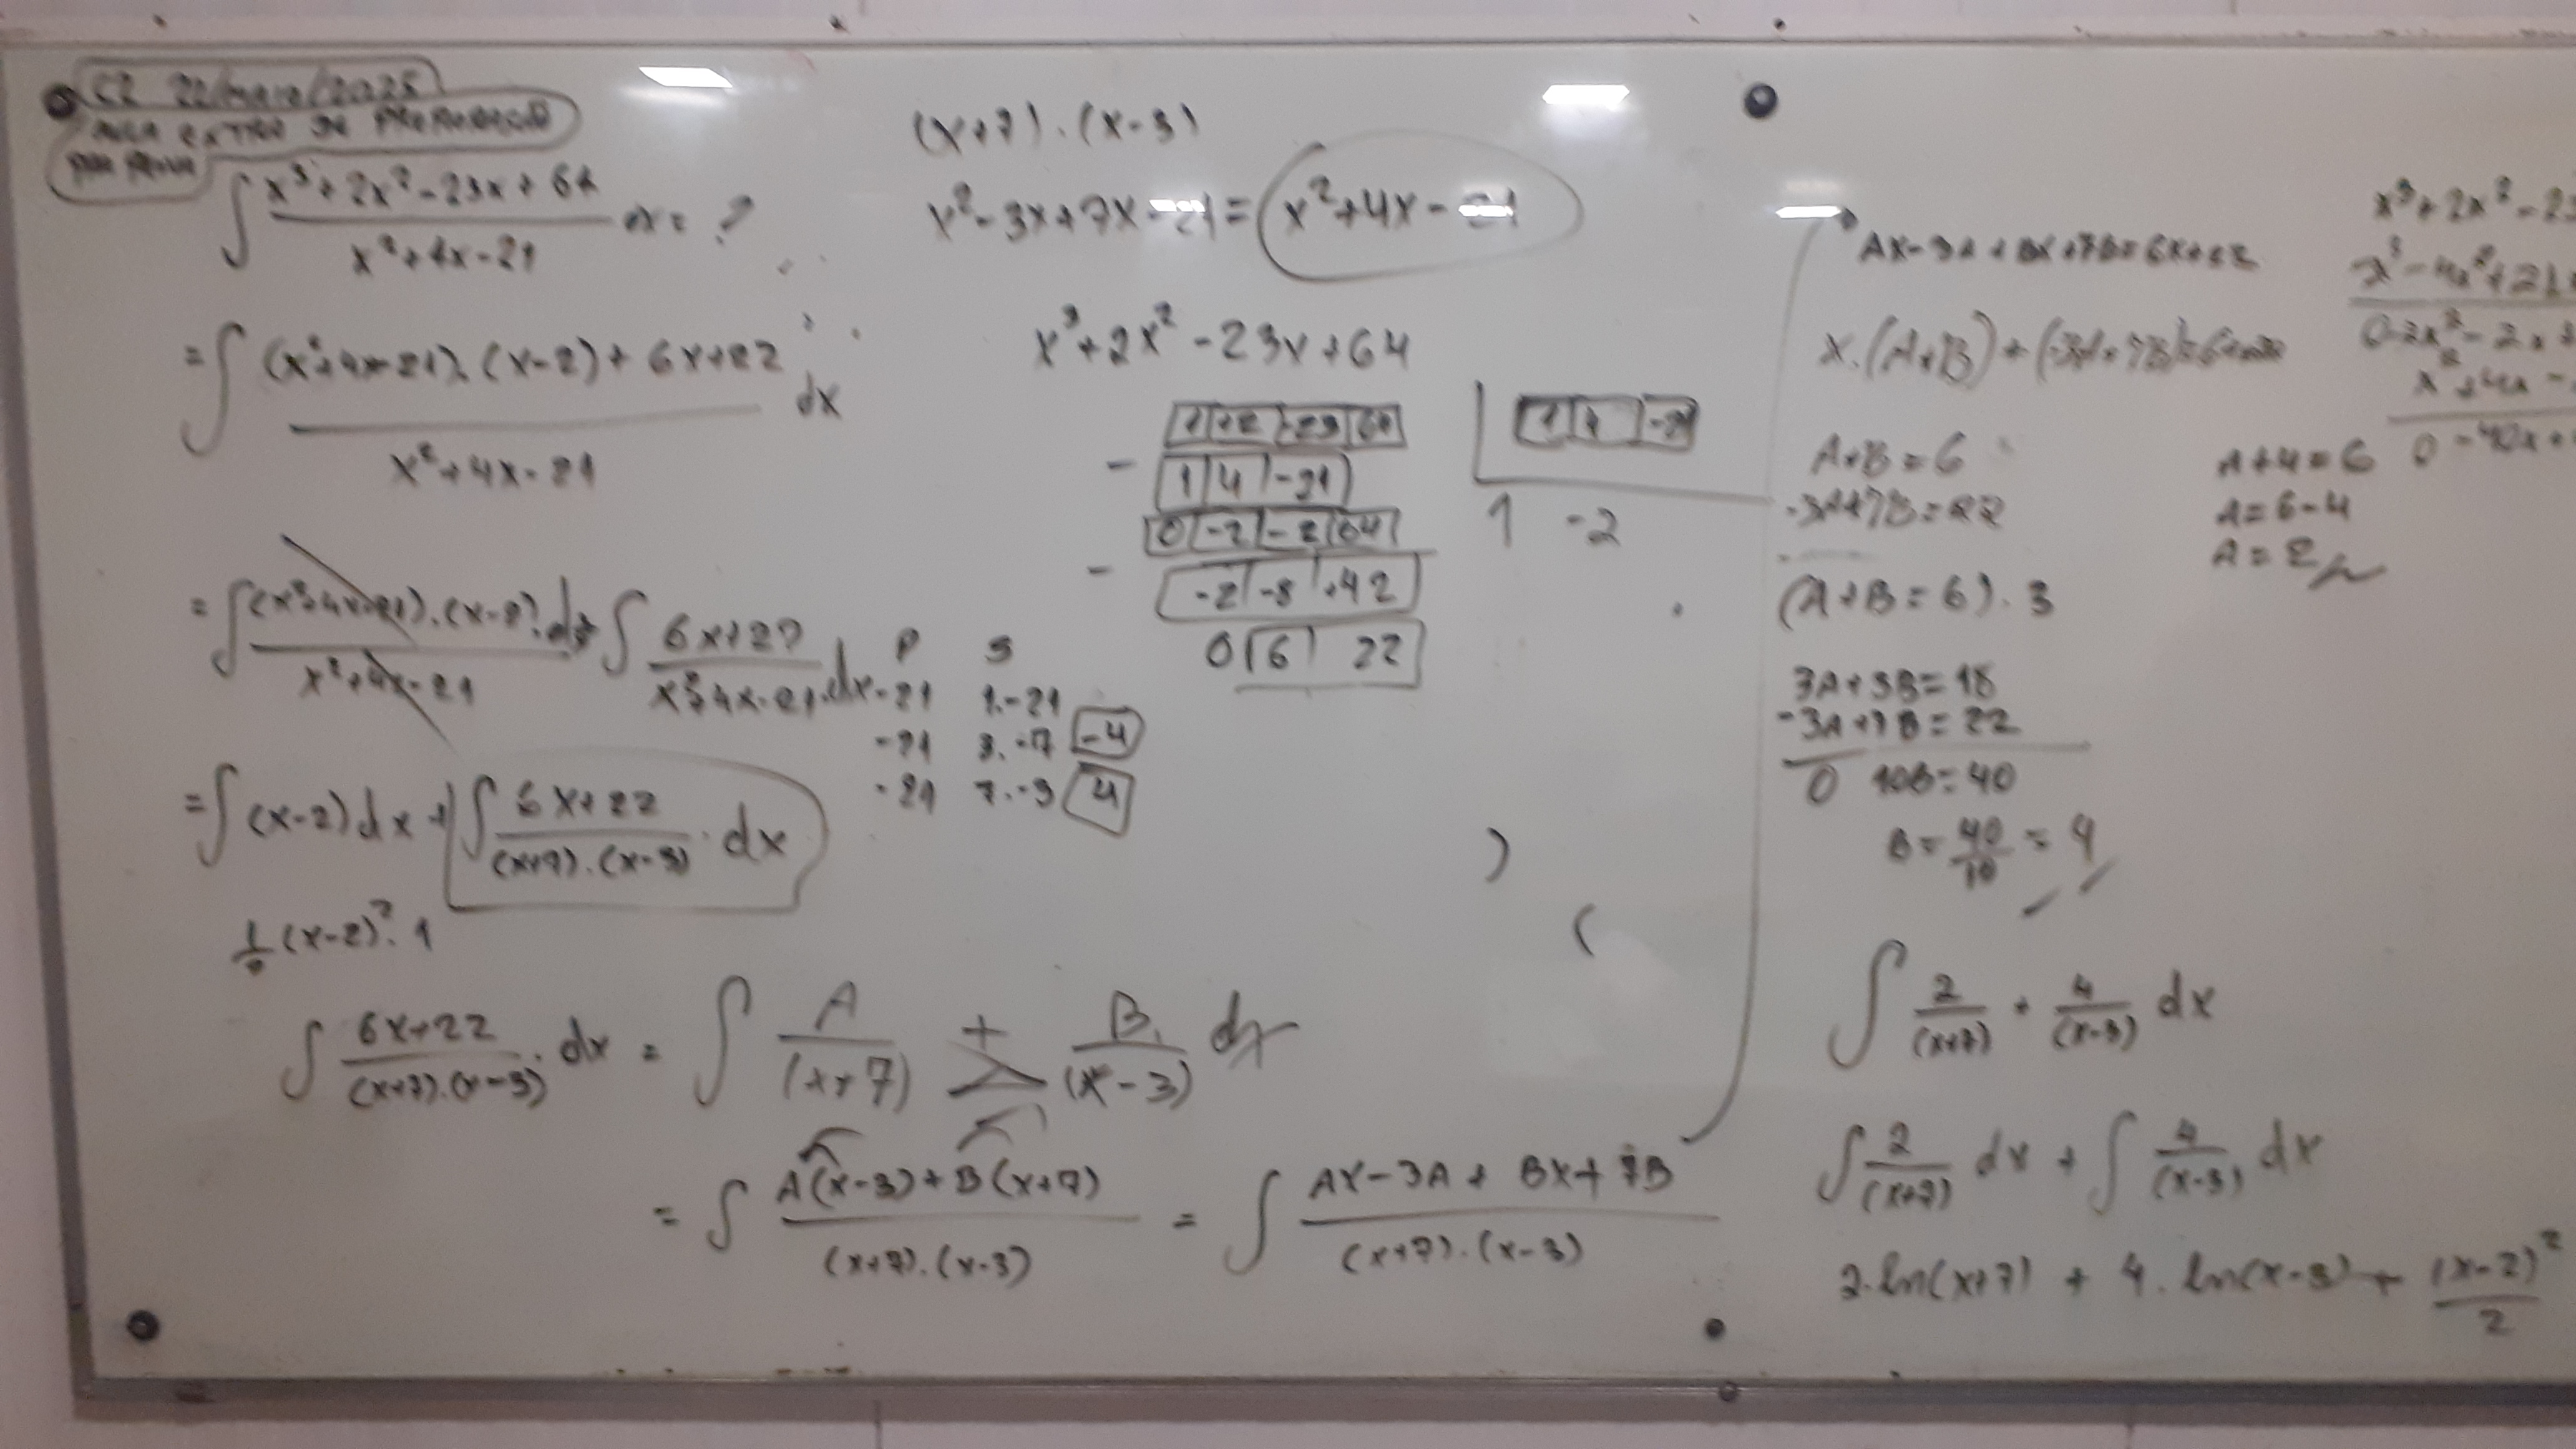 C2 22/maio/2025
AULA EXTRA DE PREPARAÇÃO
PRA PROVA
∫ x³+2x²-23x+64 / x²+4x-21 dx = ?
= ∫ (x²+4x-21).(x-2)+6x+22 / x²+4x-21 dx
= ∫ (x²+4x-21).(x-2).dx / x²+4x-21 + ∫ 6x+22 / x²+4x-21 .dx
= ∫ (x-2)dx + ∫ 6x+22 / (x+7).(x-3) . dx
(x-2)². 1
∫ 6x+22 / (x+7).(x-3) . dx = ∫ A / (x+7) + B / (x-3) dx
= ∫ A(x-3)+B(x+7) / (x+7).(x-3) = ∫ Ax-3A+Bx+7B / (x+7).(x-3)
(x+7).(x-3)
x²-3x+7x-21 = x²+4x-21
x³+2x²-23x+64
1 +2 -23 64 | 1 4 -21
- 1 4 -21 | 1 -2
0 -2 -2 64
- -2 -8 +42
0 6 22
P S
-21 1.-21
-21 3.-7 -4
-21 7.-3 4
Ax-3A+Bx+7B=6x+22
x.(A+B)+(-3A+7B)=6x+22
A+B=6
-3A+7B=22
(A+B=6).3
3A+3B=18
-3A+7B=22
0 10B=40
B=40/10=4
A+4=6
A=6-4
A=2
∫ 2/(x+7) + 4/(x-3) dx
∫ 2/(x+7) dx + ∫ 4/(x-3) dx
2.ln(x+7) + 4.ln(x-3) + (x-2)²/2
x³+2x²-2
0-2x²-2x